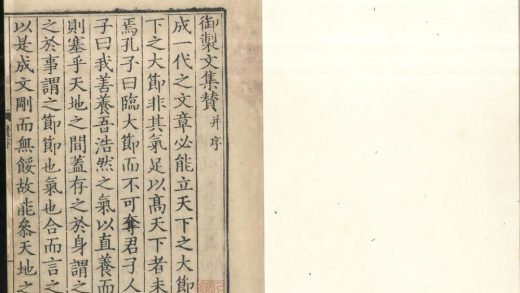 御製文集賛 并序
成一代之文章必能立天下之大節
下之大節非其氣足以髙天下者未
焉孔子曰臨大節而不可奪君子人
子曰我善養吾浩然之氣以直養而
則塞乎天地之間蓋存之於身謂之
之於事謂之節節也氣也合而言之
以是成文剛而無餒故能叅天地之